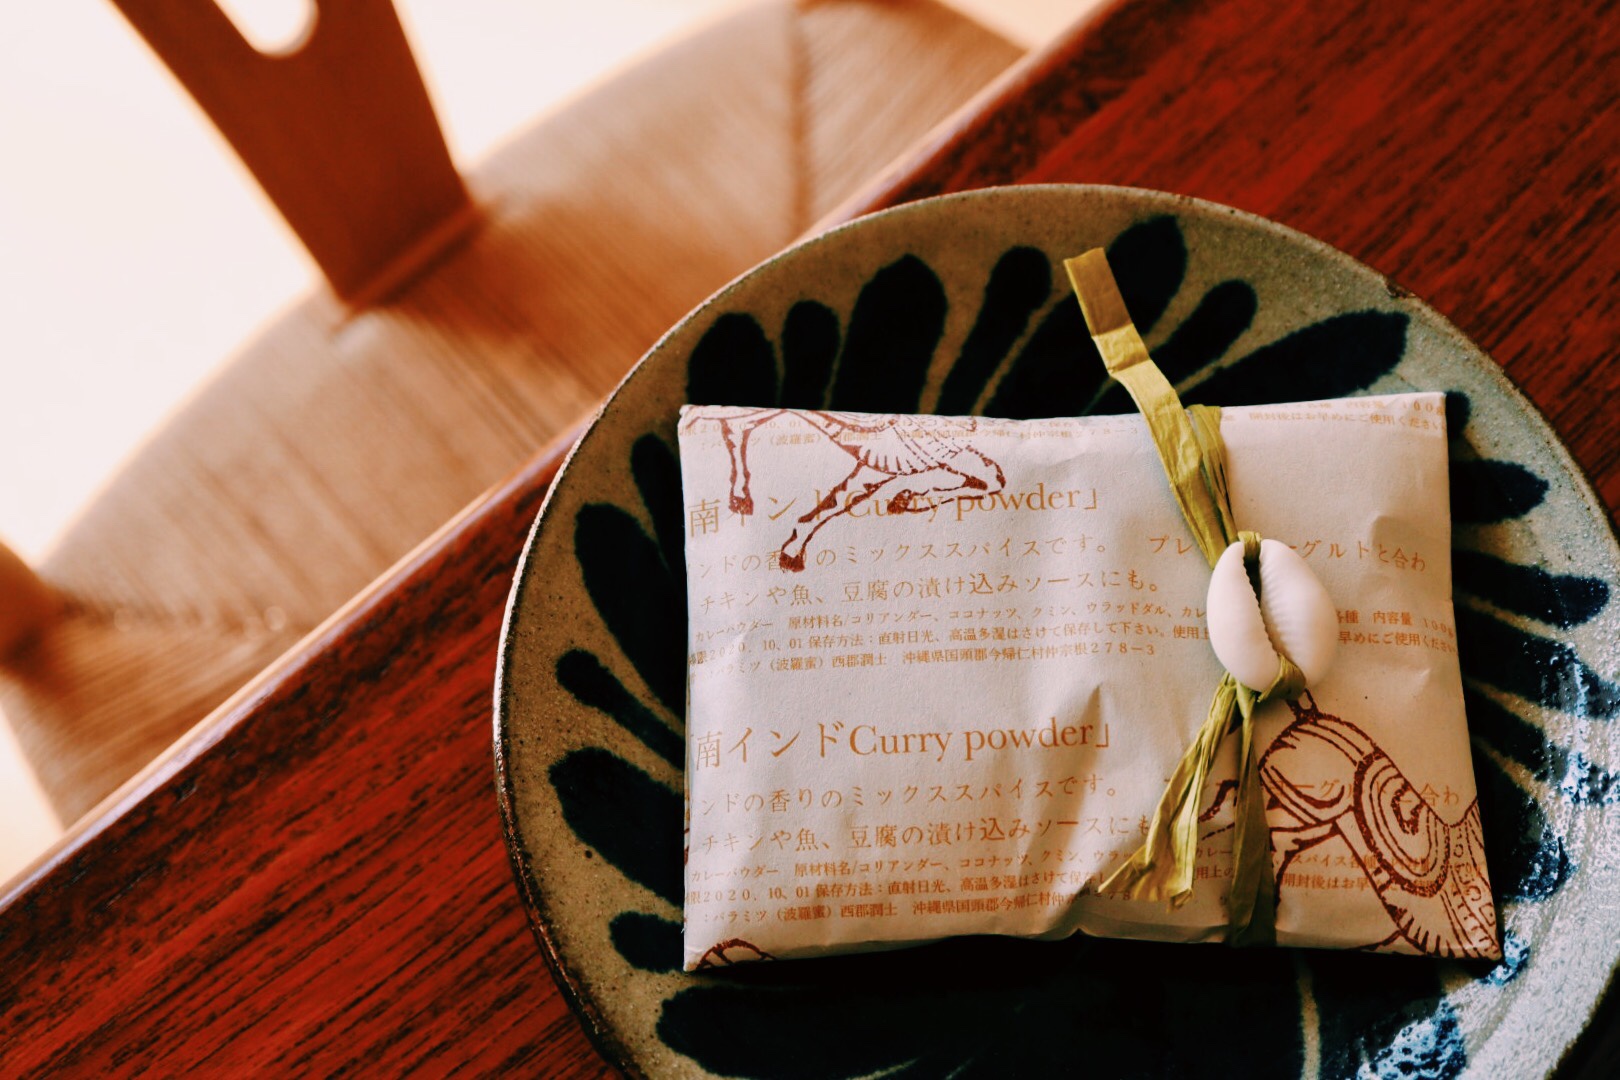 限2020. 10、01
：パラミツ（波羅蜜）西郡潤士 沖縄県国頭郡今帰仁村仲宗根278-
内容量 100g
開封後はお早めにご使用ください
南インドCurry powder」
ンドの香りのミックススパイスです。 プレ ーグルトと合わ
チキンや魚、豆腐の漬け込みソースにも。
カレーパウダー 原材料名/コリアンダー、ココナッツ、クミン、ウラッドダル、カレ 各種 内容量 100g
限2020. 10、01 保存方法：直射日光、高温多湿はさけて保存して下さい。使用上 早めにご使用ください
：パラミツ（波羅蜜）西郡潤士 沖縄県国頭郡今帰仁村仲宗根278-3
南インドCurry powder」
ンドの香りのミックススパイスです。 プ ーグ 合わ
チキンや魚、豆腐の漬け込みソースにも
カレーパウダー 原材料名/コリアンダー、ココナッツ、クミン、ウラ カレー スパイス各種
限2020. 10、01 保存方法：直射日光、高温多湿はさけて保存し 用上の 開封後はお早
：パラミツ（波羅蜜）西郡潤士 沖縄県国頭郡今帰仁村仲宗根278